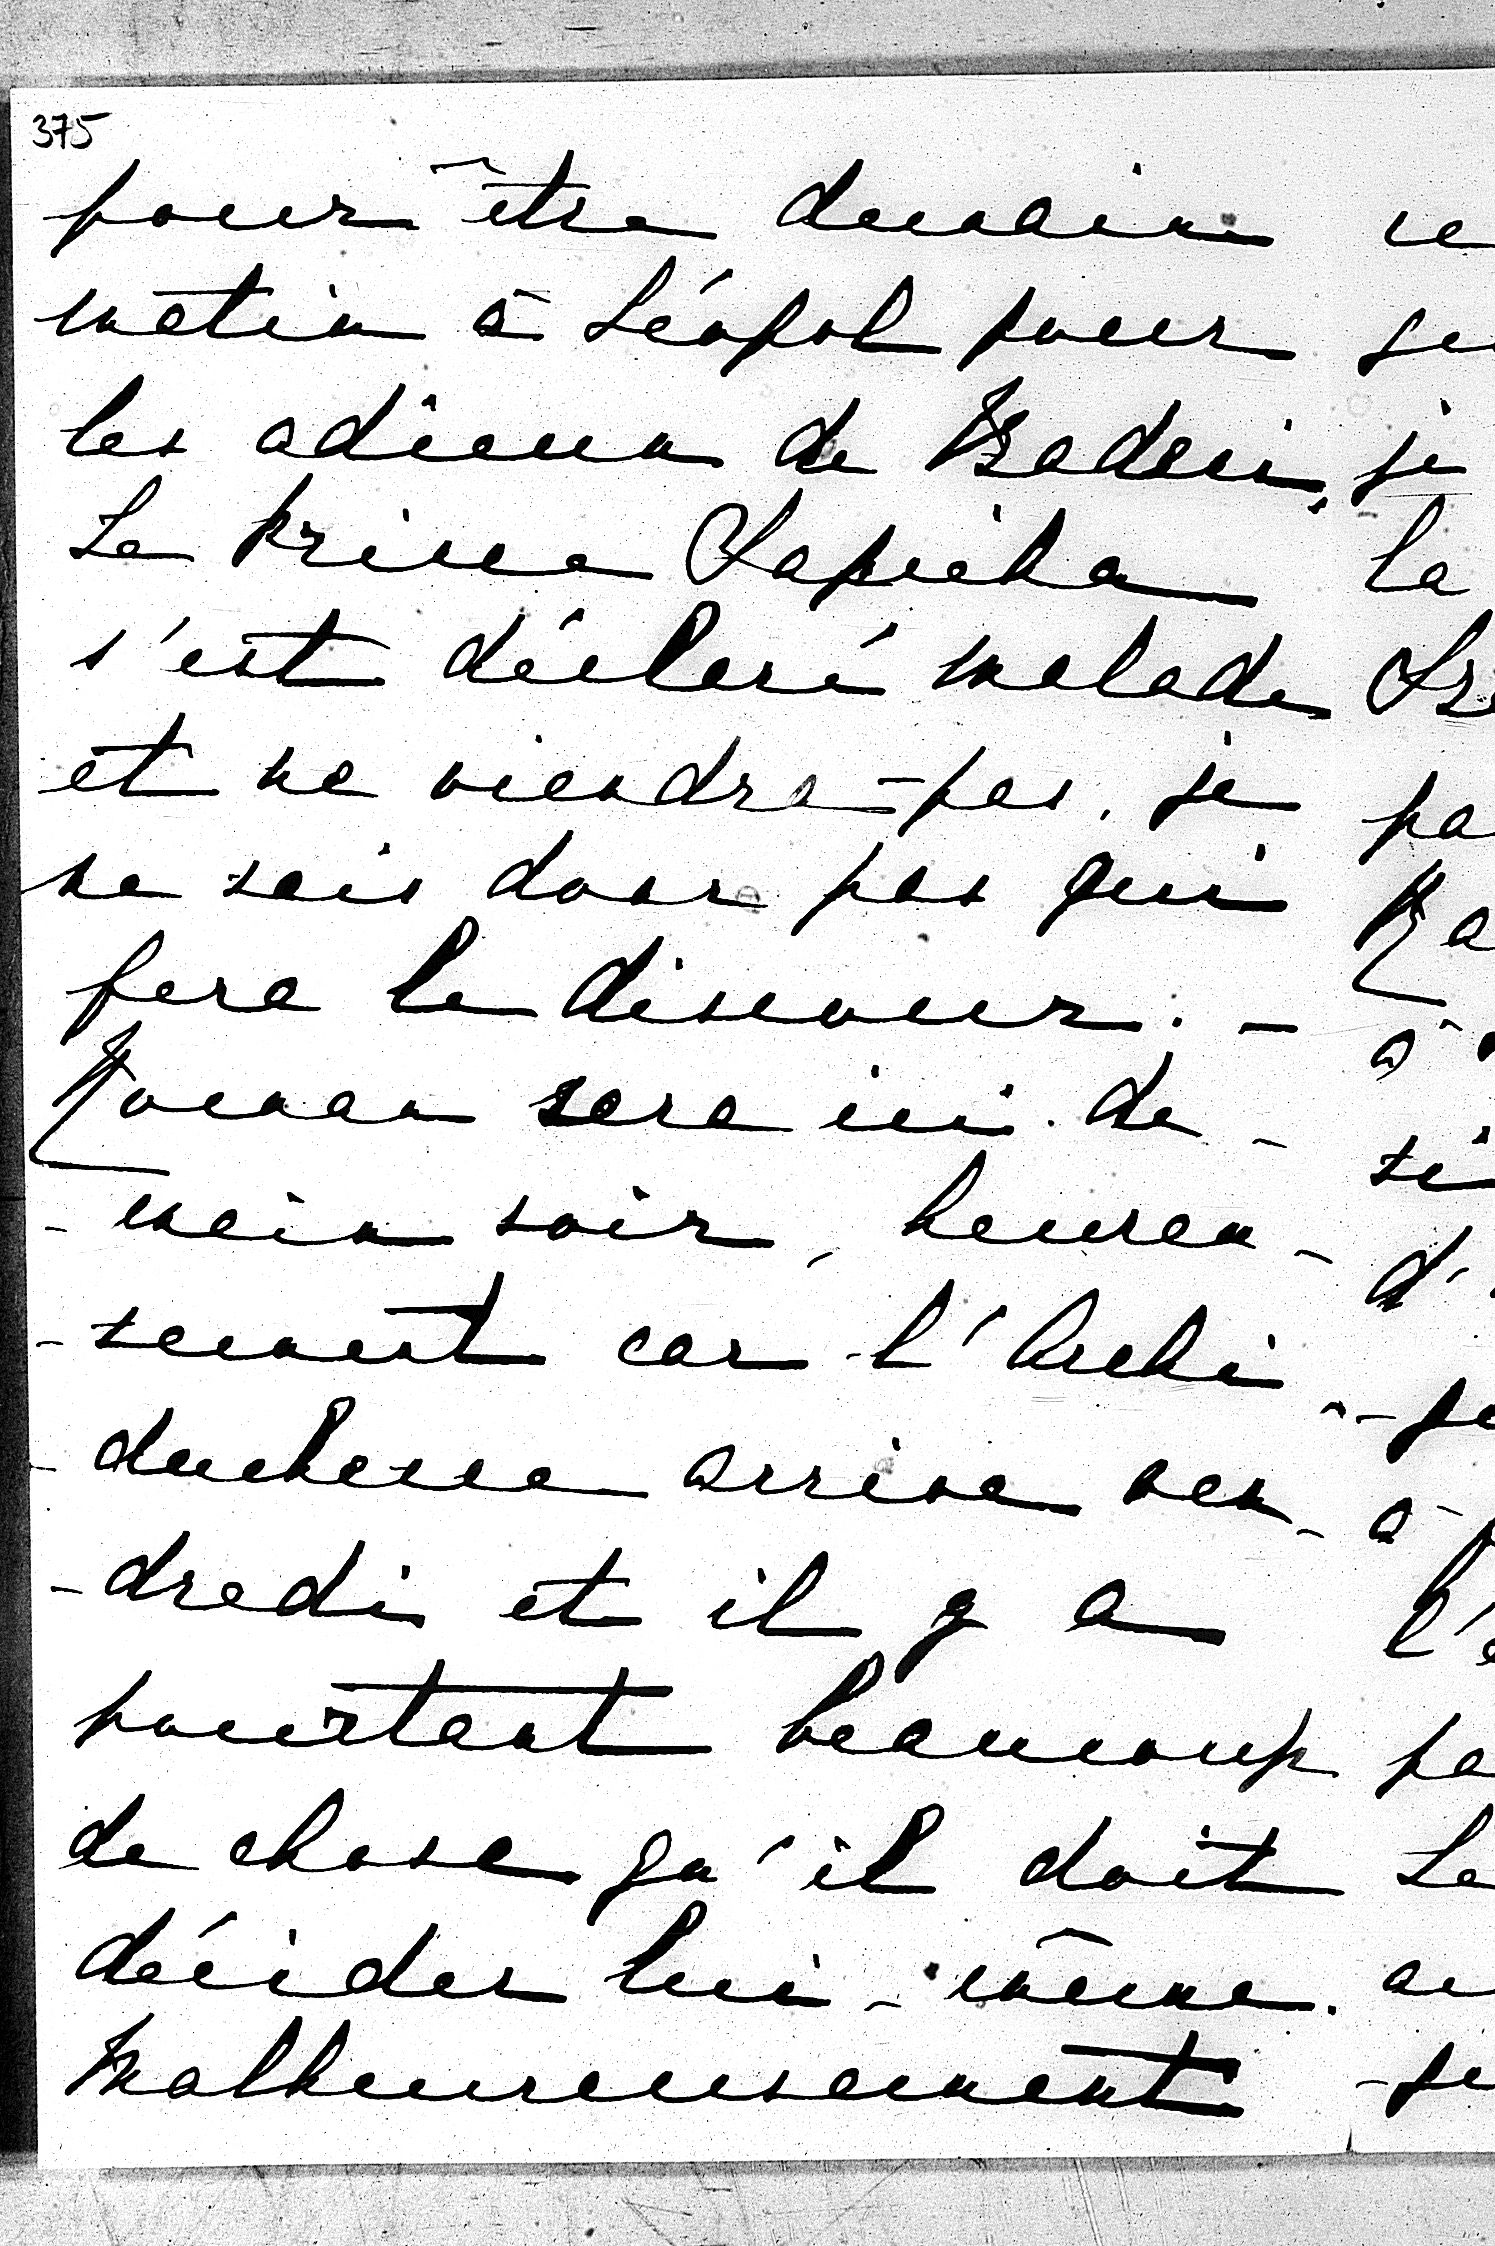 375
pour être demain
matin à Léopol pour
les adieux de Badeni,
Le Prince Sapieha
s'est déclaré malade
et ne viendra-pas, je
ne sais donc pas qui
fera le discour. -
Roman sera ici de -
- main soir, heureu -
- sement car l'Archi -
- duchesse arrive ven -
- dredi et il y a
pourtant beaucoup
de chose qu'il doit
décider lui-même.
Malheureusement